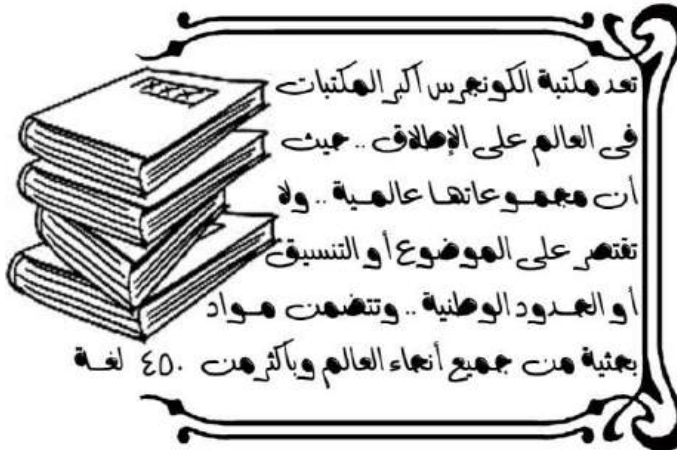 تعد مكتبة الكونجرس أكبر المكتبات
فى العالم على الإطلاق .. حيث
أن مجمـوعاتهـا عالمـية .. ولا
تقتصر على الموضوع أو التنسيق
أو الحـدود الوطنية .. وتتضمن مـواد
بحثية من جميع أنحاء العالم وبأكثر من ٤٥٠ لغـة